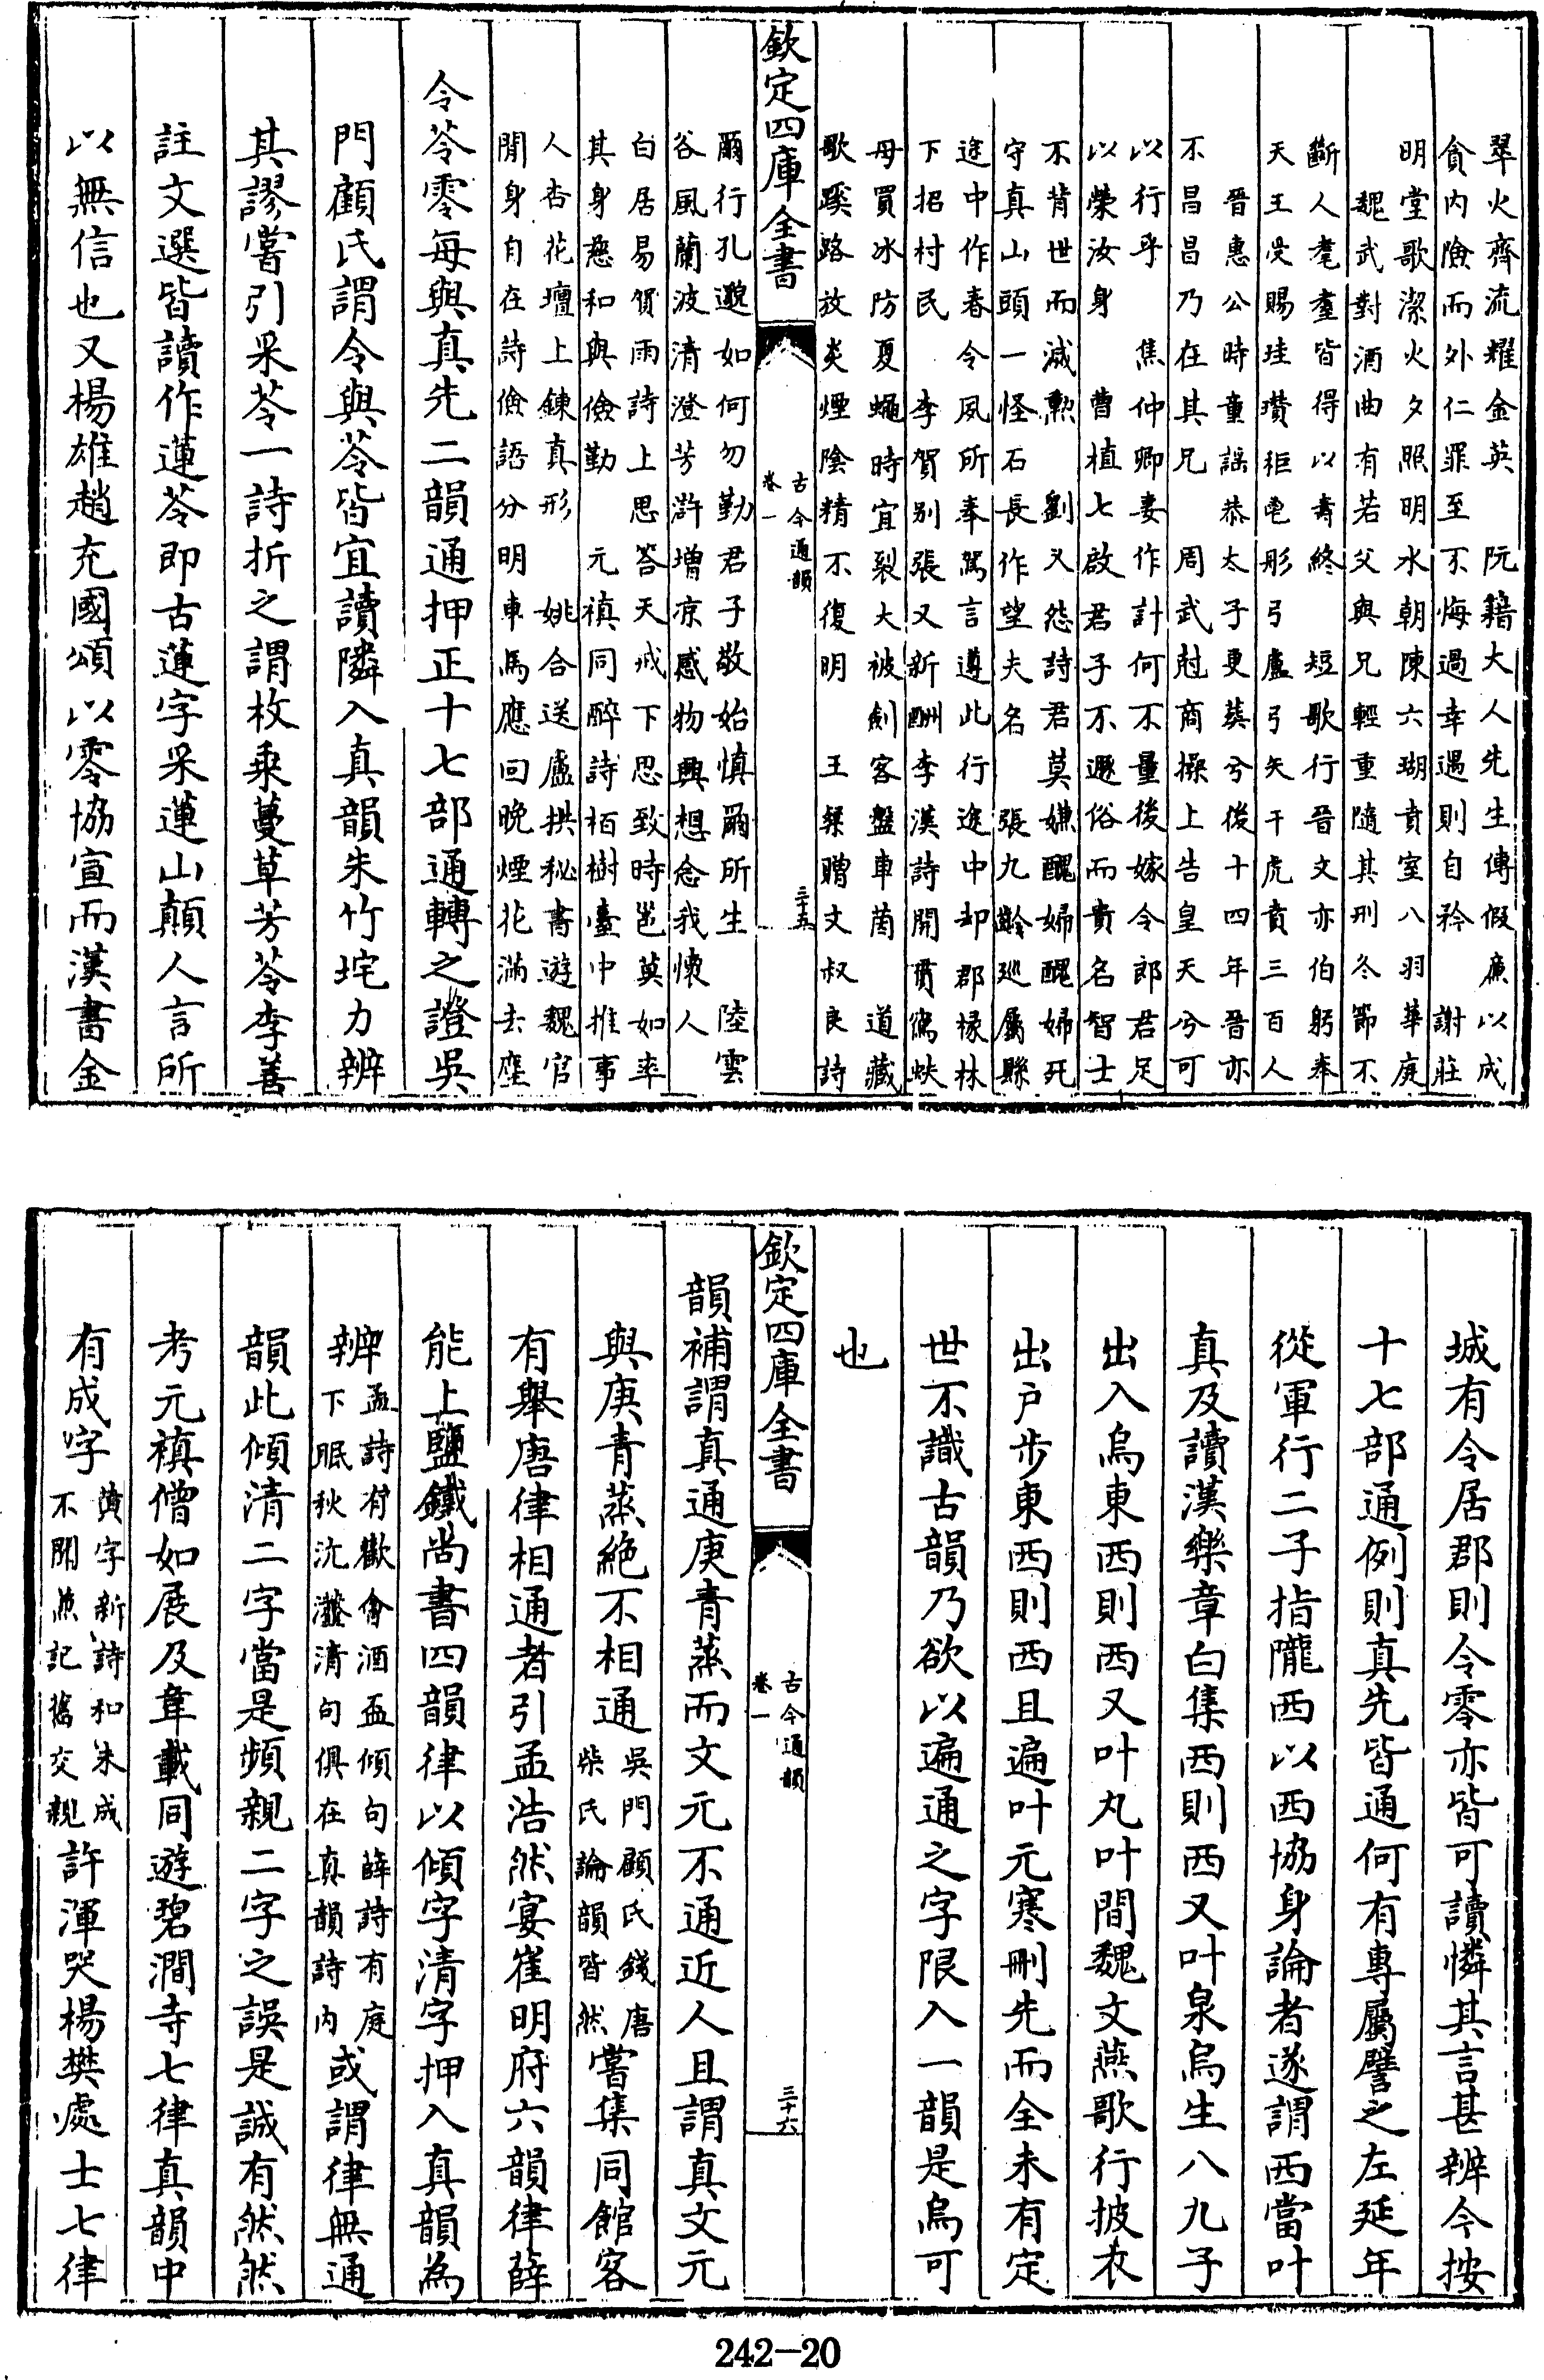 翠火齊流耀金英　阮籍大人先生傳假廉以成
貪內險而外仁罪至不悔過幸遇則自矜　謝莊
明堂歌潔火夕照明水朝陳六瑚賁室八羽華庭
魏武對酒曲有若父與兄輕重隨其刑冬節不
斷人耄耋皆得以壽終　短歌行晉文亦伯躬奉
天王受賜珪瓚秬鬯彤弓盧弓矢千虎賁三百人
晉惠公時童謠恭太子更葬兮後十四年晉亦
不昌昌乃在其兄　周武尅商操上告皇天兮可
以行乎　焦仲卿妻作計何不量後嫁令郎君足
以榮汝身　曹植七啟君子不遯俗而貴名智士
不背世而滅勲　劉乂怨詩君莫嫌醜婦醜婦死
守真山頭一怪石長作望夫名　張九齡巡屬縣
途中作春令夙所奉駕言遵此行途中却郡掾林
下招村民　李賀别張又新酬李漢詩開貫瀉蚨
母買冰防夏蠅時宜裂大被劍客盤車茵　道藏
歌蹊路放炎煙陰精不復明　王粲贈文叔良詩
欽定四庫全書
古今通韻
卷一
三十五
爾行孔邈如何勿勤君子敬始慎爾所生　陸雲
谷風蘭波清澄芳滸增凉感物興想念我懷人
白居易賀雨詩上思答天戒下思致時邕莫如率
其身慈和與儉勤　元稹同醉詩栢樹臺中推事
人杏花壇上鍊真形　姚合送盧拱秘書遊魏官
閒身自在詩儉語分明車馬應回晚煙花滿去塵
令苓零每與真先二韻通押正十七部通轉之證吳
門顧氏謂令與苓皆宜讀隣入真韻朱竹垞力辨
其謬嘗引采苓一詩折之謂枚乗蔓草芳苓李善
註文選皆讀作蓮苓即古蓮字采蓮山顛人言所
以無信也又楊雄趙充國頌以零協宣而漢書金
城有令居郡則令零亦皆可讀憐其言甚辨今按
十七部通例則真先皆通何有專屬譬之左延年
從軍行二子指隴西以西協身論者遂謂西當叶
真及讀漢樂章白集西則西又叶泉烏生八九子
出入烏東西則西又叶丸叶間魏文燕歌行披衣
出户步東西則西且遍叶元寒刪先而全未有定
世不識古韻乃欲以遍通之字限入一韻是烏可
也
欽定四庫全書
古今通韻
卷一
三十六
韻補謂真通庚青蒸而文元不通近人且謂真文元
與庚青蒸絶不相通吳門顧氏錢唐柴氏論韻皆然嘗集同館客
有舉唐律相通者引孟浩然宴崔明府六韻律薛
能上鹽鐵尚書四韻律以傾字清字押入真韻為
辨孟詩有歡會酒盃傾句薛詩有庭下眠秋沆瀣清句俱在真韻詩内或謂律無通
韻此傾清二字當是頻親二字之誤是誠有然然
考元稹僧如展及韋載同遊碧澗寺七律真韻中
有成字黄字新詩和未成不聞無記舊交親許渾哭楊樊處士七律
242—20